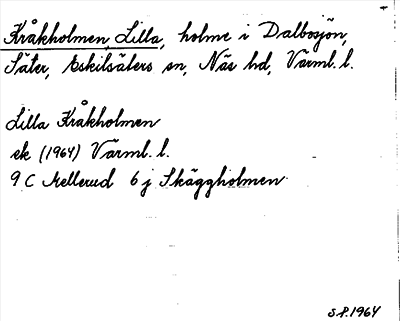 Kråkholmen, Lilla, holme i Dalbosjön,
Säter, Eskilsäters sn, Näs hd, Värml. l.
Lilla Kråkholmen
ek (1964) Värml. l.
9 C Mellerud 6 j Skäggholmen
S.P. 1964